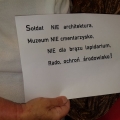 Sołdat NIE architektura,
Muzeum NIE cmentarzysko,
NIE dla brązo lapidarium,
Rado, echroń środowisko!